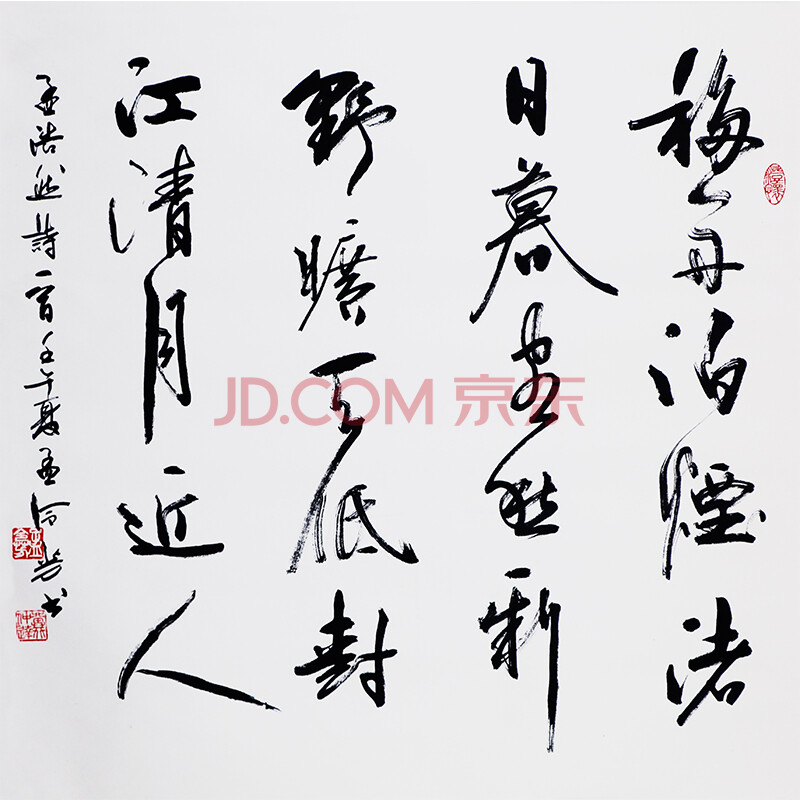 移舟泊煙渚
日暮客愁新
野曠天低樹
江清月近人
孟浩然詩一首壬午夏孟书
JD.COM 京东